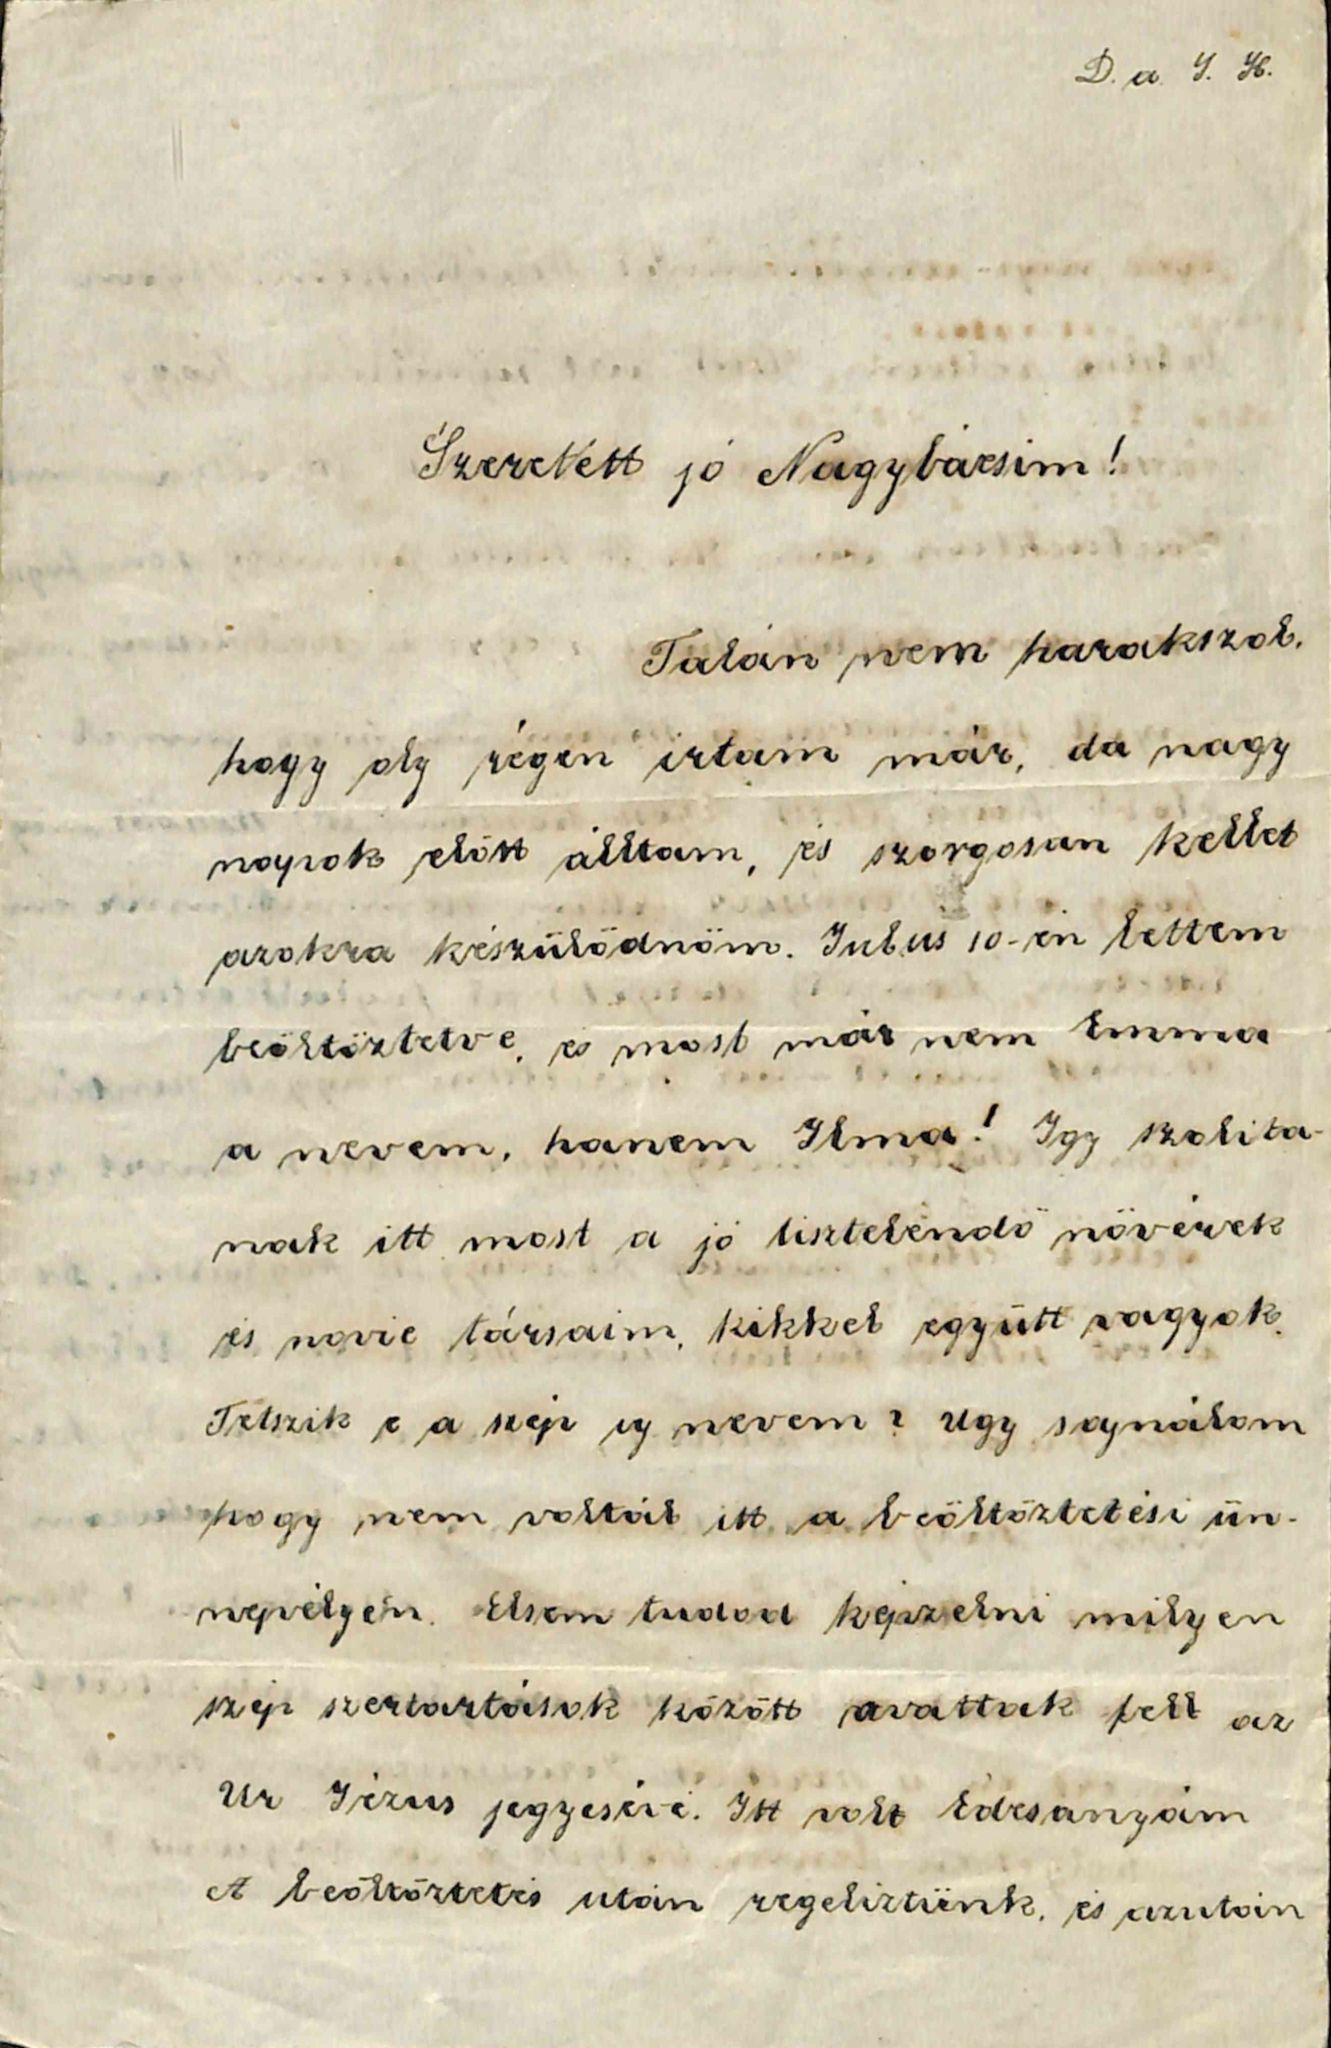 D. a. J. H.
Szeretett jó Nagybácsim!
Talán nem harakszol.
hogy oly régen irtam már, de nagy
napok előtt álltam, és szorgosan kellet
azokra készülödnöm. Julius 10-én lettem
beöltöztetve, és most már nem Emma
a nevem, hanem Ilma! Igy szolita-
nak itt most a jó tisztelendö növérek
és novic társaim, kikkel együtt vagyok.
Tetszik e a szép uj nevem? Ugy sajnálom
hogy nem voltál itt a beöltöztetési ün-
nepélyen. Elsem tudod képzelni milyen
szép szertartások között avattak fell az
Ur Jézus jegyesévé. Itt volt Édesanyám
A beöltöztetés után regeliztünk, és azután